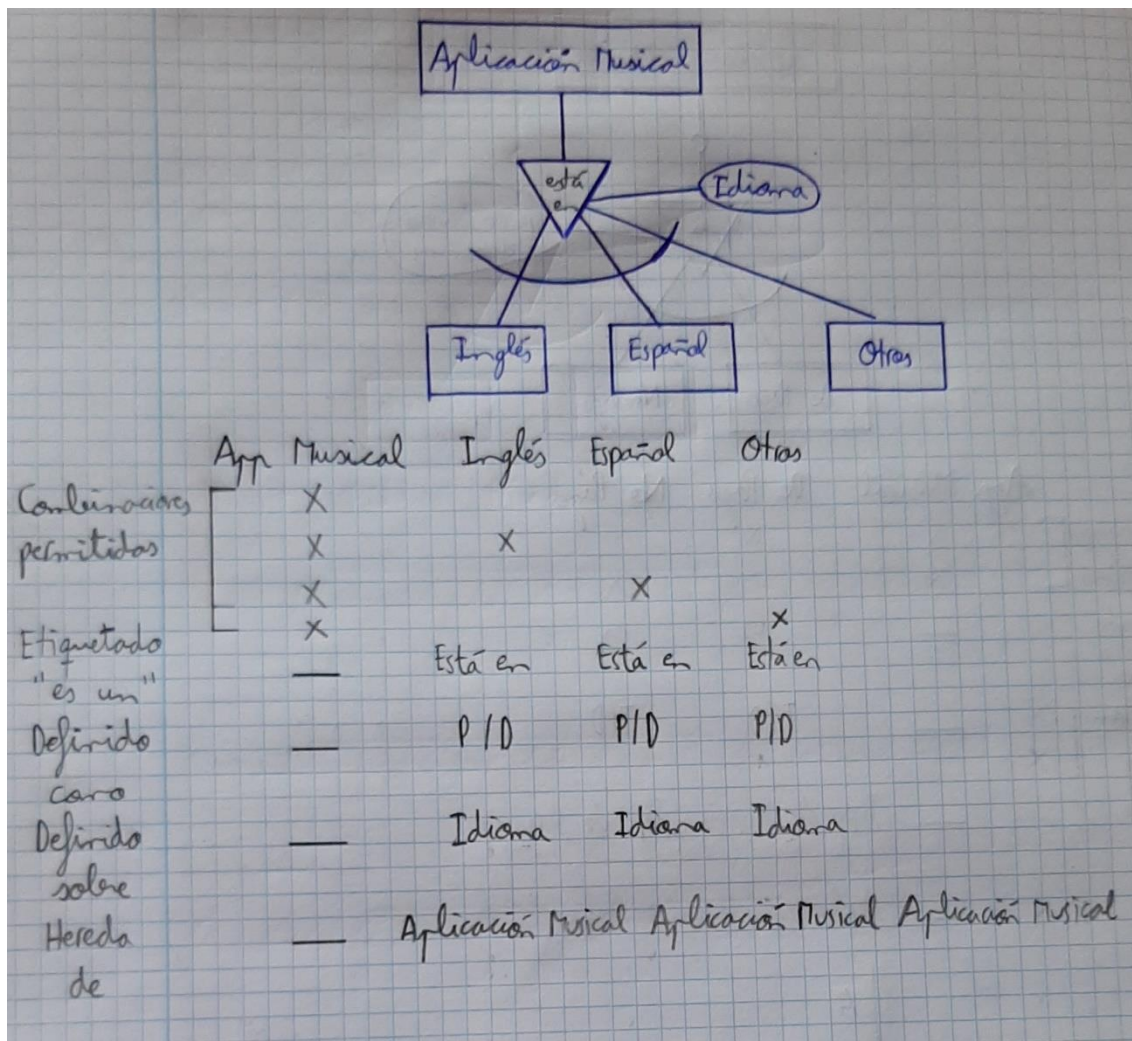 Aplicación Musical
está
en
Idioma
Inglés Español Otros
App Musical Inglés Español Otros
Combinaciones X
permitidas X X
X X
X X
Etiquetado — Está en Está en Está en
"es un"
Definido — P/D P/D P/D
como
Definido — Idioma Idioma Idioma
sobre
Hereda — Aplicación Musical Aplicación Musical Aplicación Musical
de